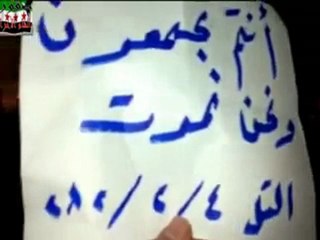 أنتم تجمعون
ونحن نموت
التل ٤/٢/٢٠١٢